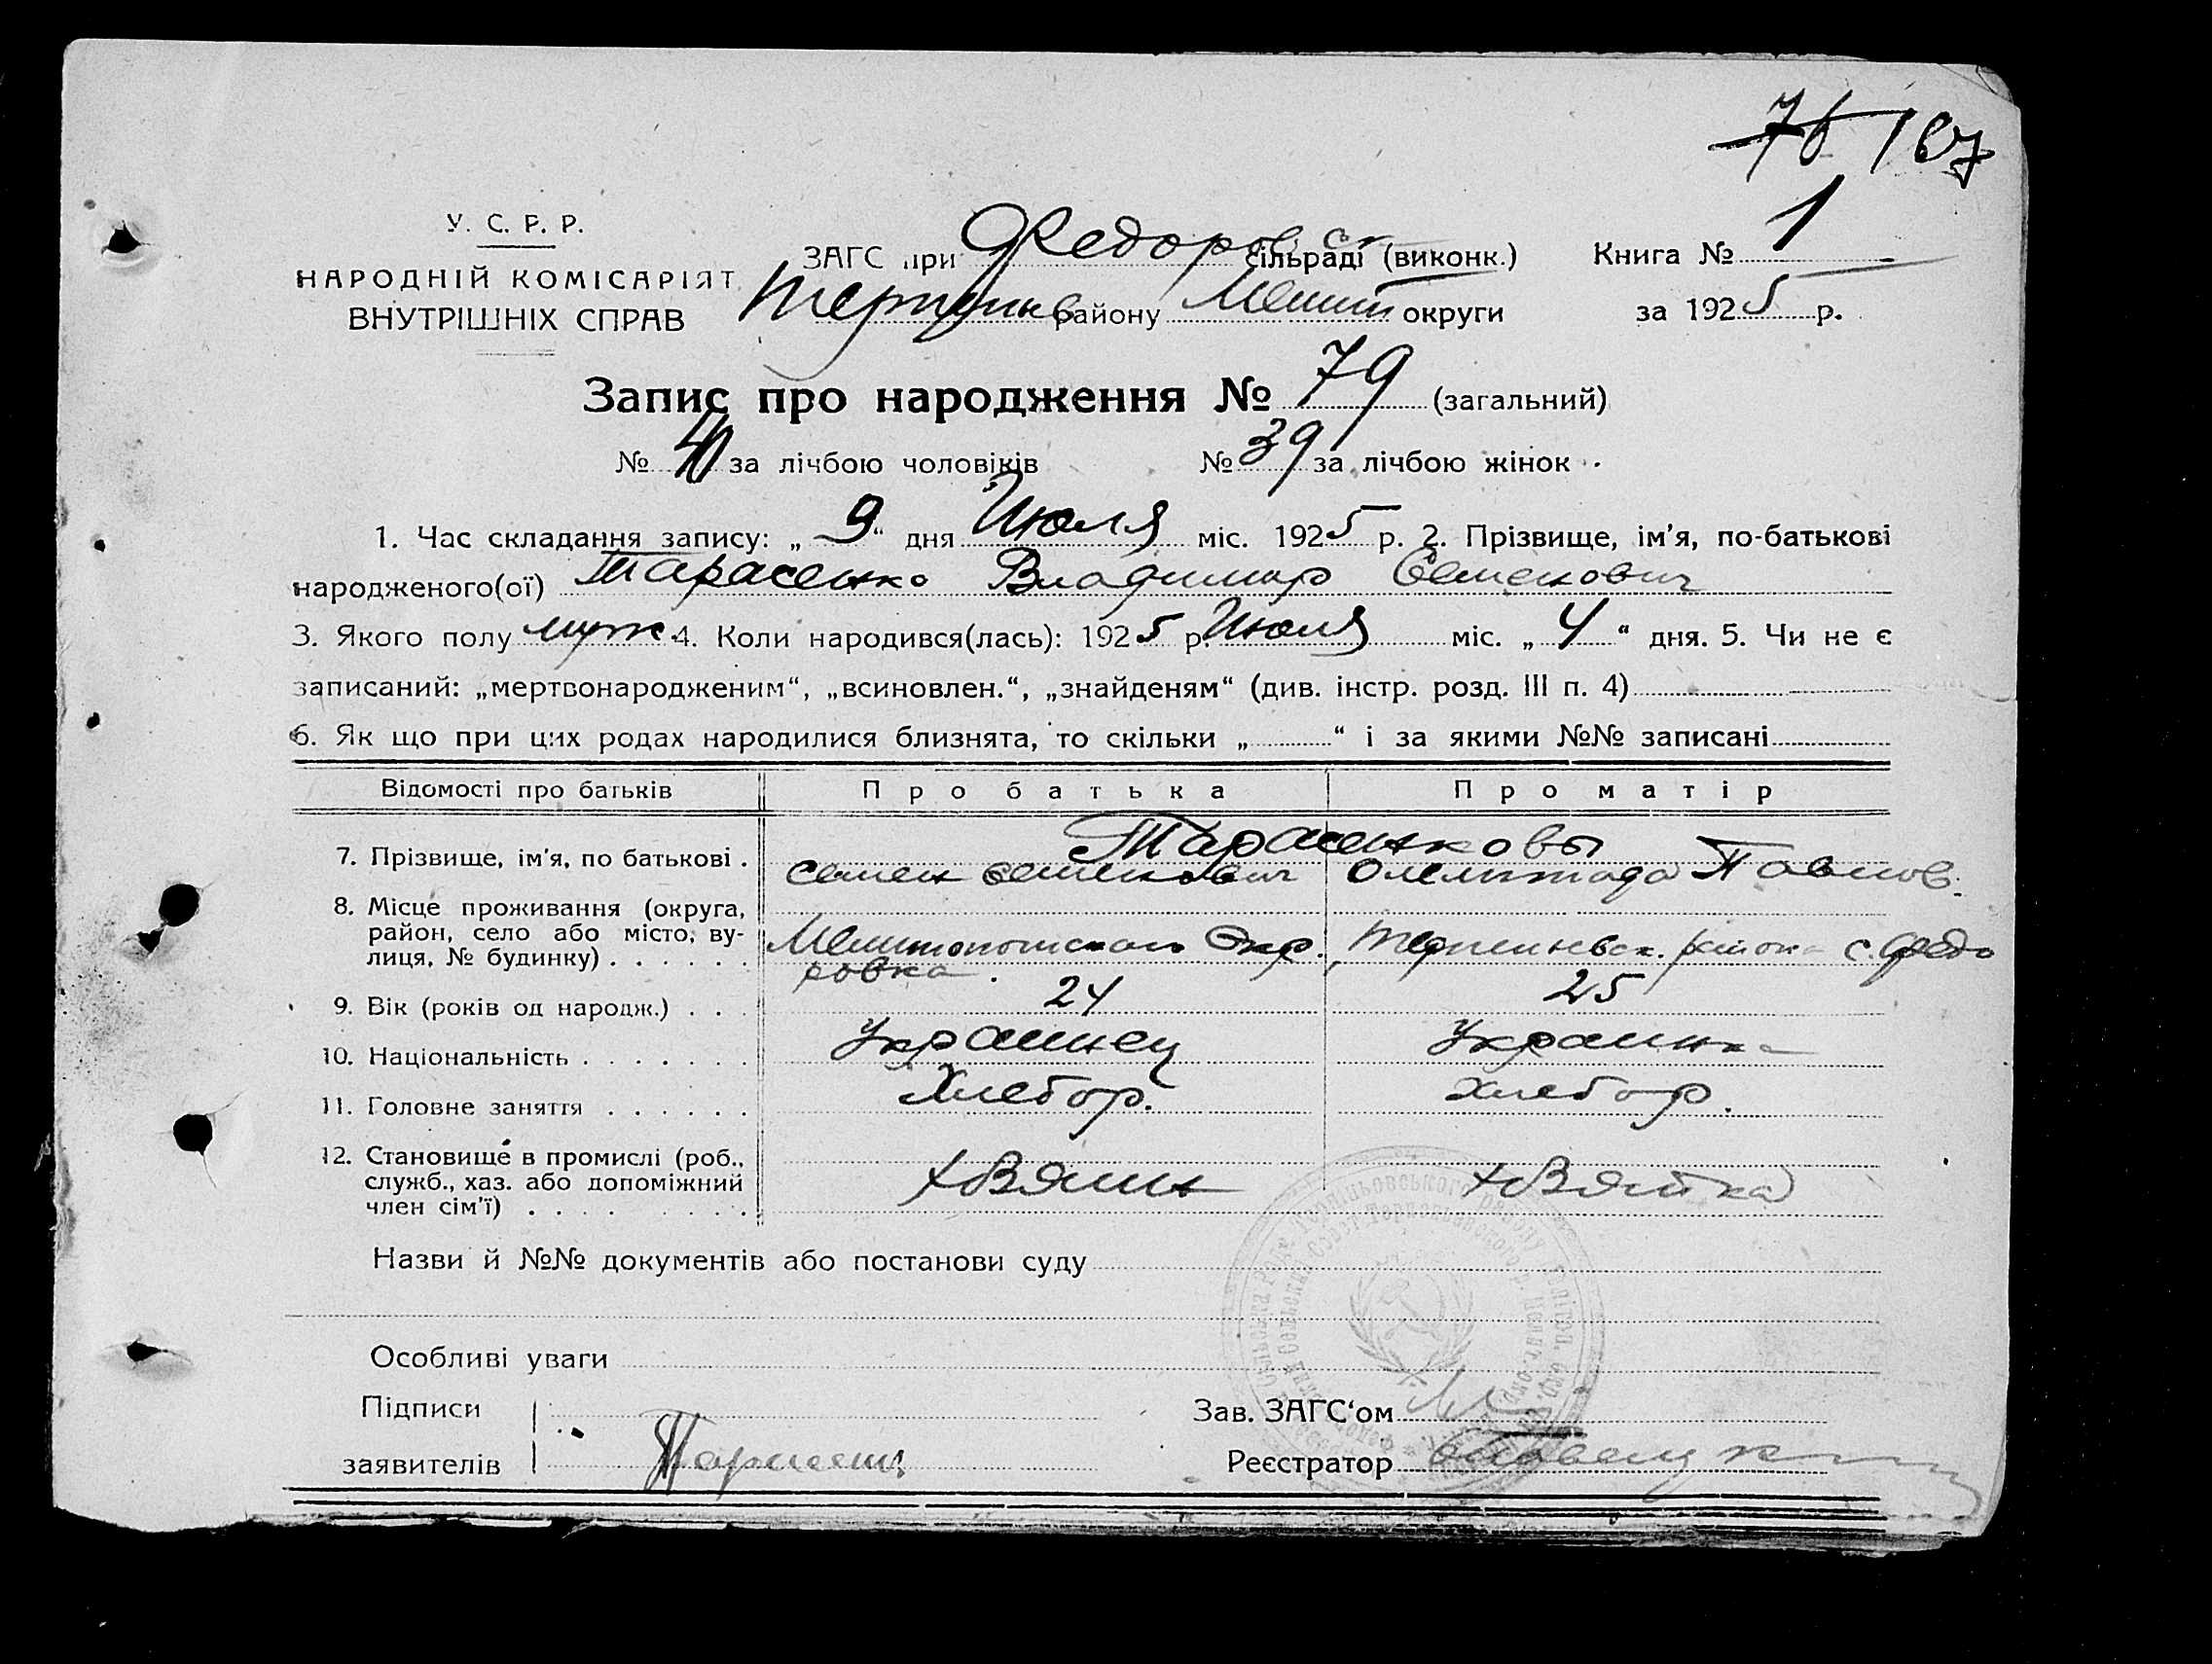 76 167
У. С. Р. Р.
НАРОДНІЙ КОМІСАРІЯТ
ВНУТРІШНІХ СПРАВ
ЗАГС при Федоровск сільраді (виконк.) Книга № 1
району Мелит округи за 1925 р.
Запис про народження № 79 (загальний)
№ 40 за лічбою чоловіків № 39 за лічбою жінок
1. Час складання запису: „ 9 “ дня Июля міс. 1925 р. 2. Прізвище, ім'я, по-батькові
народженого(ої) Тарасенко Владимир Семенович
3. Якого полу муж. 4. Коли народився(лась): 1925 р. Июля міс. „ 4 “ дня. 5. Чи не є
записаний: „мертвонародженим“, „всиновлен.“, „знайденям“ (див. інстр. розд. III п. 4)
6. Як що при цих родах народилися близнята, то скільки „ “ і за якими №№ записані
Відомості про батьків Про батька Про матір
Тарасенковы
7. Прізвище, ім'я, по батькові . Семен Семенович Олемпиада Павлов.
8. Місце проживання (округа,
район, село або місто, ву-
лиця, № будинку) . . . . . . Мелитопольского Окр. Терпеньевск. района с. Федо
ровка.
9. Вік (років од народж.) . . . 24 25
10. Національність . . . . . . . Украинец Украинка
11. Головне заняття . . . . . . Хлебор. Хлебор.
12. Становище в промислі (роб.,
служб., хаз. або допоміжний
член сім'ї) . . . . . . . . хозяин хозяйка
Назви й №№ документів або постанови суду
Особливі уваги
Підписи
заявителів Тарасенк
Зав. ЗАГС‘ом
Реєстратор